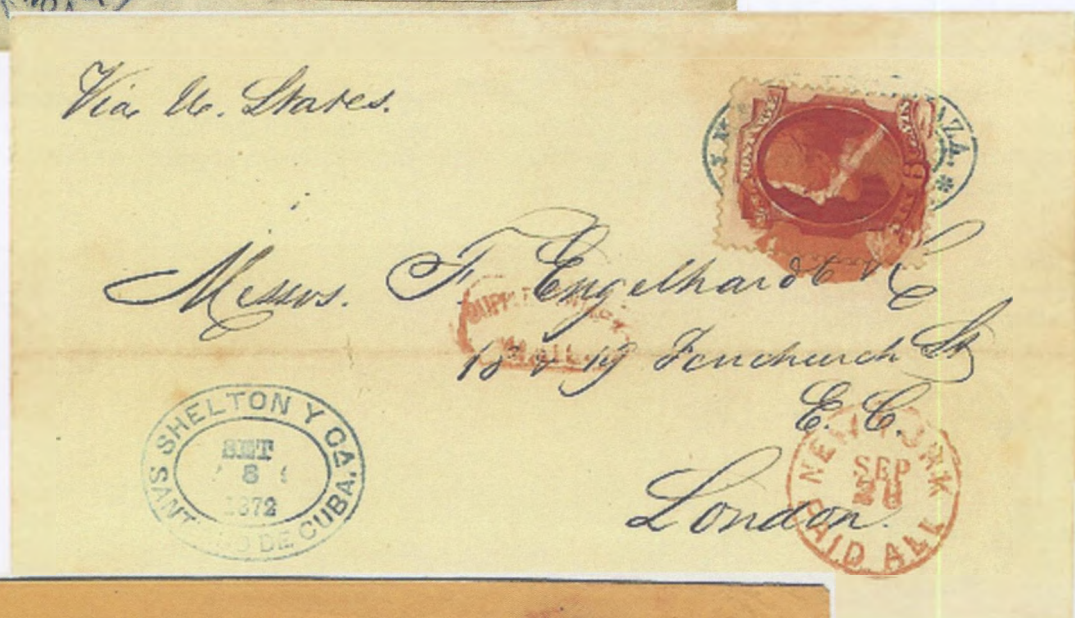 Via U. States.
Messrs. F. Engelhardt & C
SUPPLEMENTARY
MAIL
18 & 19 Fenchurch St
E. C.
London.
SHELTON Y CA.
SET
8
1872
SANTIAGO DE CUBA.
NEW YORK
SEP
PAID ALL